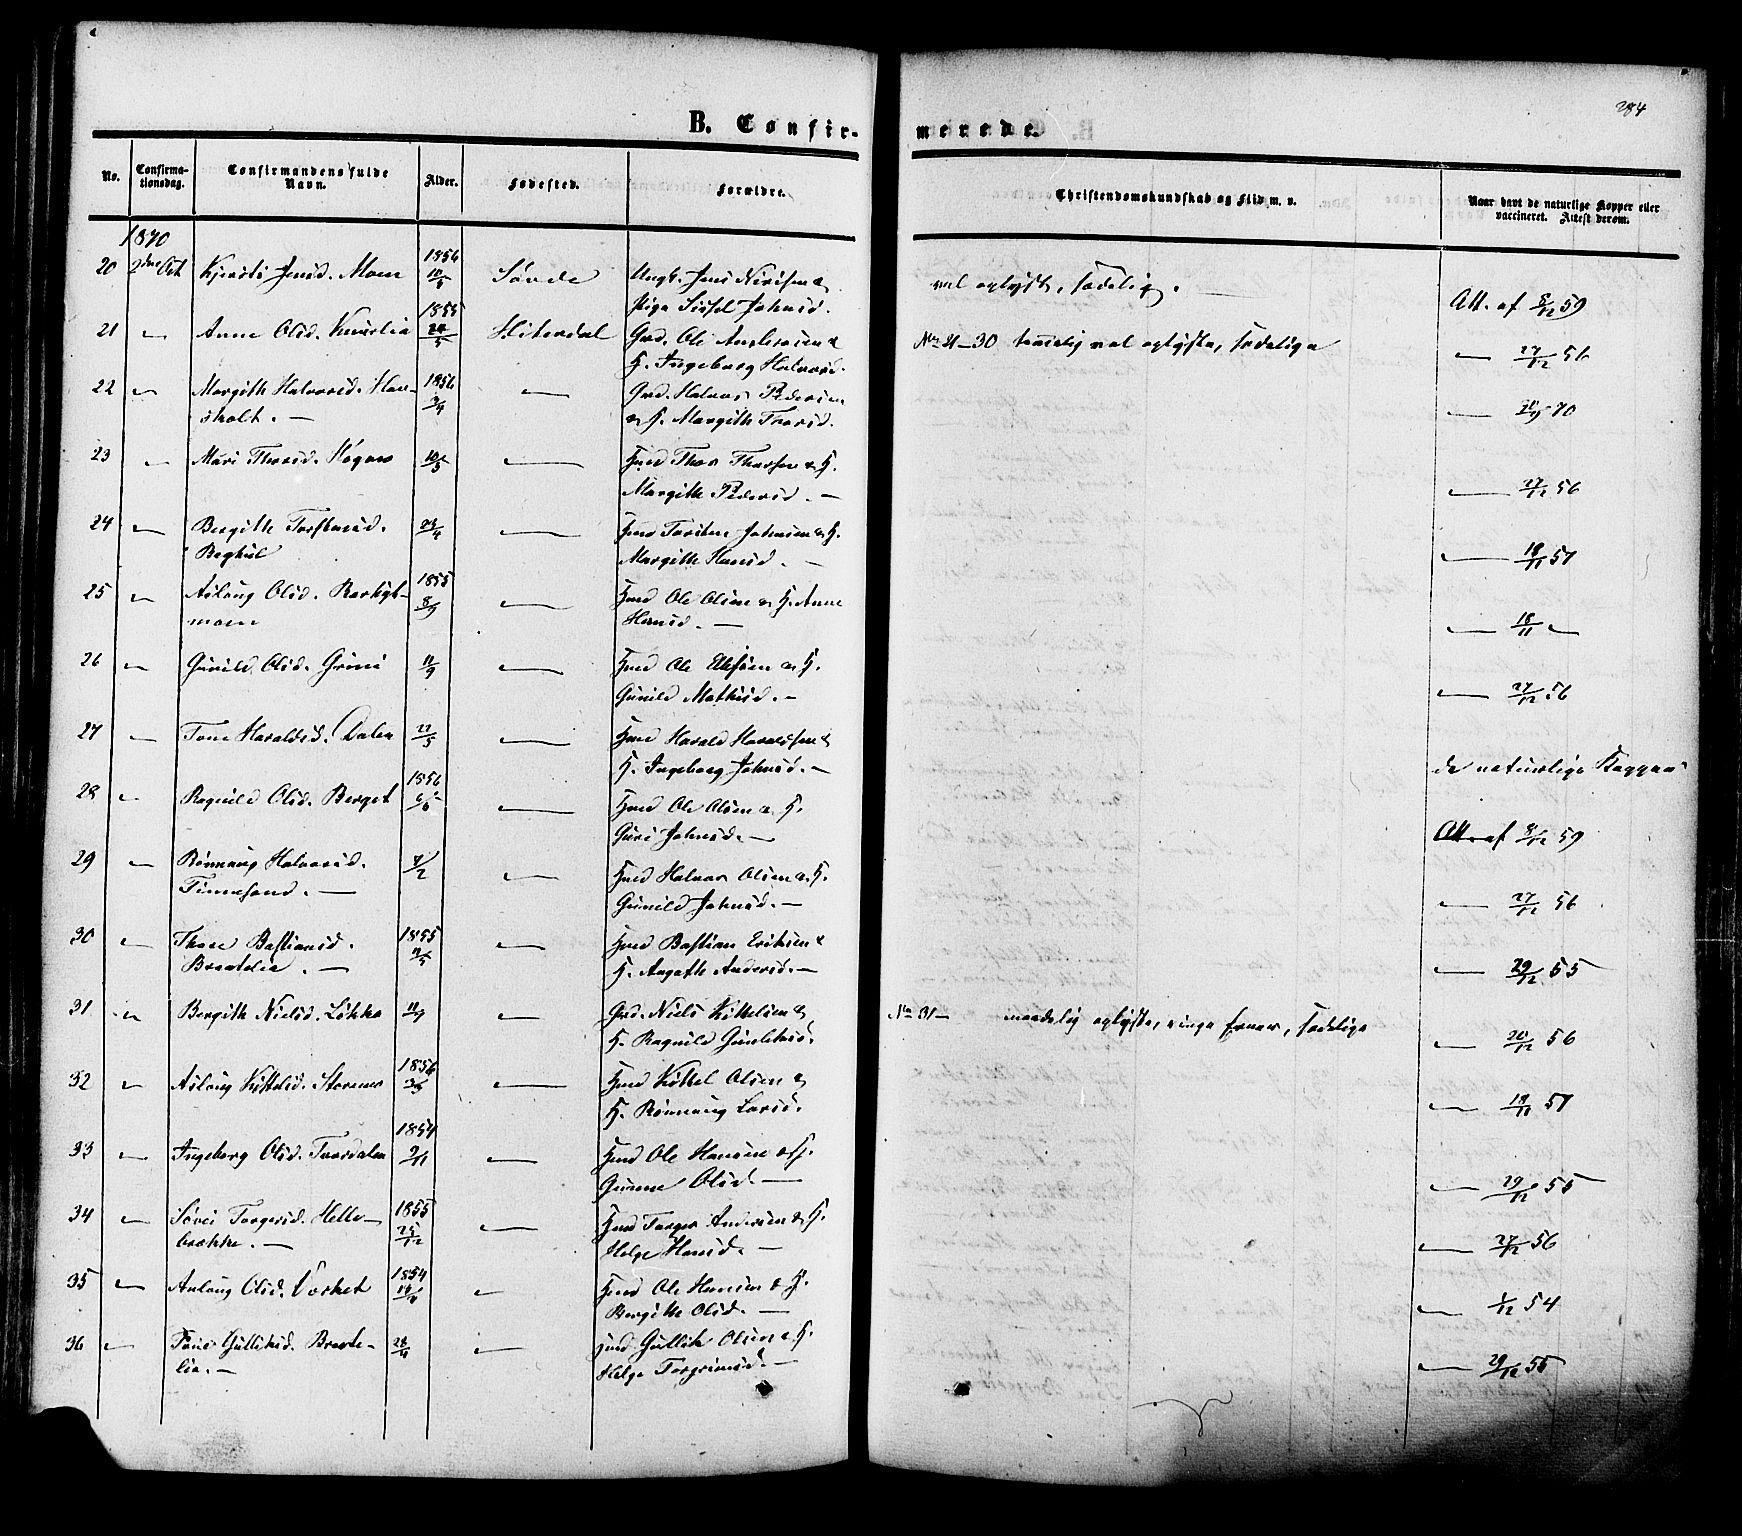 284
B. Confir-
merede
No.
Confirma-
tionsdag.
Confirmandens fulde
Navn.
Alder.
Fødested.
Forældre.
Christendomskundskab og Flid m. v.
Naar havt de naturlige Kopper eller
vaccineret. Attest derom.
1870
20 2den Oct Kjersti Jensd. Moen 1856 10/5 Sövde Ungk. Jens Nirisen &
Pige Sissel Johnsd.
vel oplyst, sædelig.
Att. af 8/12 59
21 Anne Olsd. 1855 Hiterdal Grd. Ole Andersen &
H. Ingeborg Halvorsd.
No 21–30 temmelig vel oplyste, sædelige
27/12 56
22 Margith Halvorsd. Hav-
sholt. 1856 Grd. Halvor Pedersen
& H. Margith Thorsd.
70
23 Mari Thorsd. Høgaas 10/5 Hmd Thor Thorsen & H.
Margith Pedersd.
27/12 56
24 Bergith Torstensd. 23/4 Hmd Torsten Johnsen & H.
Margith Hansd.
18/11 57
25 Aslaug Olsd.
moen 1855 8/9 Hmd Ole Olsen & H. Anne
Hansd.
18/11
26 Gunild Olsd. Grini 11/9 Hmd Ole Ellefsen & H.
Gunild Mathisd.
27/12 56
27 Tone Haraldsd. Dalen 22/5 Hmd Harald Haraldsen &
H. Ingeborg Johnsd.
de naturlige Kopper
28 Ragnild Olsd. Berget 1856 Hmd Ole Olsen & H.
Guri Johnsd.
Att. af 8/12 59
29 Rönnaug Halvorsd.
Tinnesand. Hmd Halvor Olsen & H.
Gunild Johnsd.
27/12 56
30 Thore Bastiansd.
Bratelia. 1855 Hmd Bastian Eriksen &
H. Angeth Andersd.
29/12 55
31 Bergith Nielsd. Løkka 11/9 Grd. Niels Kittelsen &
H. Ragnild Gunleiksd.
No 31– maadelig oplyste, ringe Evner, sædelige
20/12 56
32 Aslaug Kittelsd. 1856 Hmd Kittel Olsen &
H. Rönnaug Larsd.
18/11 57
33 Ingeborg Olsd. Tverdalen 1854 9/11 Hmd Ole Hansen & H.
Gunne Olsd.
29/12 55
34 Sövei Torgersd. Helle-
brække. 1855 25/12 Hmd Torger Andersen & H.
Helge Hansd.
27/12 56
35 Aslaug Olsd. 1854 Hmd Ole Hansen & H.
Bergith Olsd.
1/12 54
36 Tone Gulliksd. Brate-
lia. 28/4 Hmd Gullik Olsen & H.
Helge Torgrimsd.
29/12 55